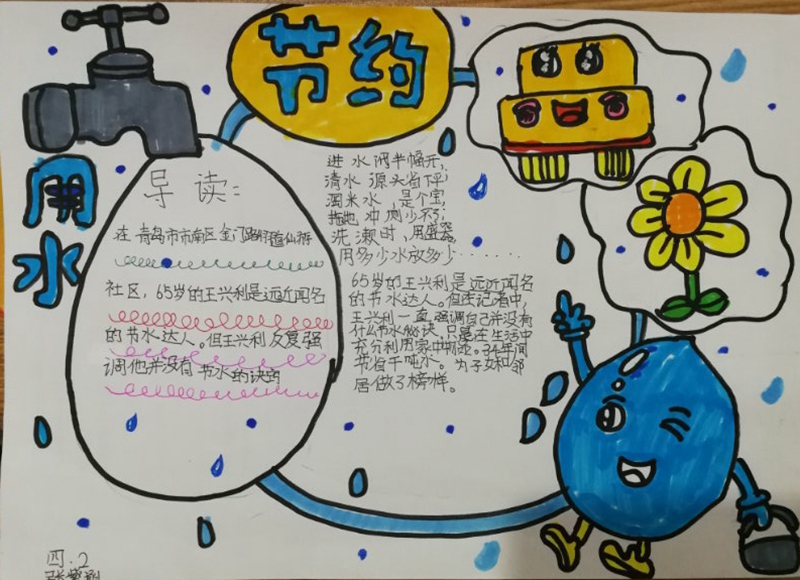 节约
用水
导读:
在青岛市市南区金门路街道仙游
社区,65岁的王兴利是远近闻名
的节水达人。但王兴利反复强
调他并没有节水的诀窍
进水闸半幅开,
清水源头省下平;
淘米水,是个宝,
拖地冲厕少不了;
洗漱时,用盛器,
用多少水放多少……
65岁的王兴利是远近闻名
的节水达人。但
王兴利一直强调自己并没有
什么节水秘诀,只是在生活中
充分利用家中
节省千吨水。为子女和邻
居做了榜样。
四.2